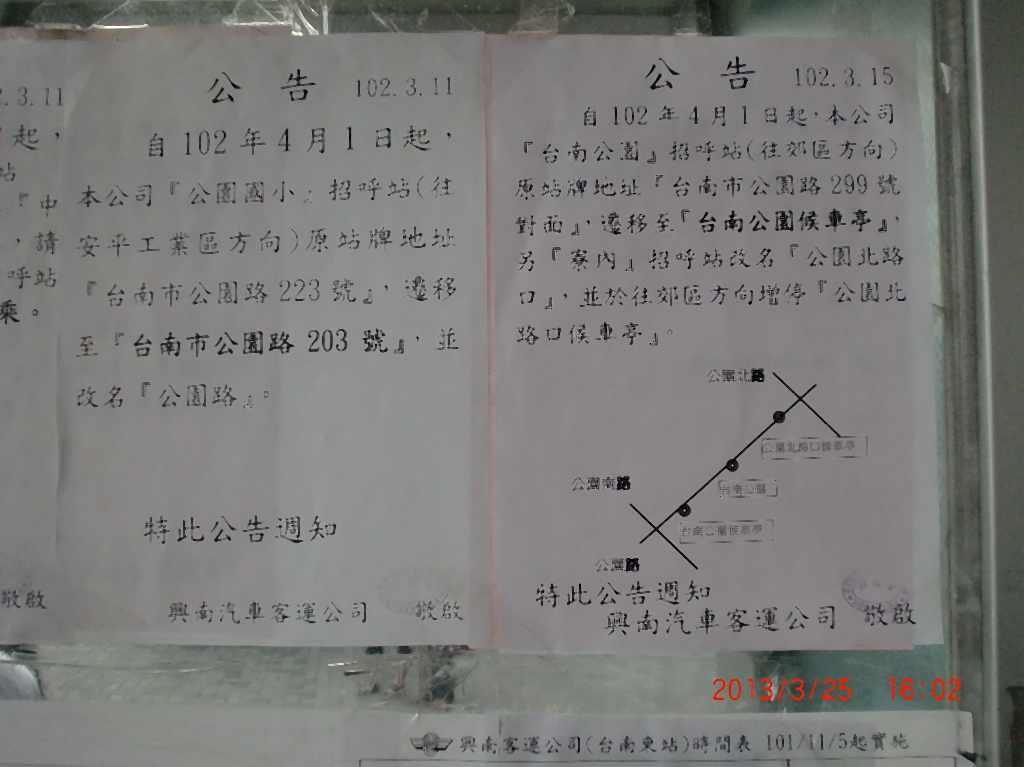 2.3.11
起，
站
『中
，請
呼站
乘。
敬啟
公告 102.3.11
自102年4月1日起，
本公司『公園國小』招呼站(往
安平工業區方向)原站牌地址
『台南市公園路223號』，遷移
至『台南市公園路203號』，並
改名『公園路』。
特此公告週知
興南汽車客運公司 敬啟
公告 102.3.15
自102年4月1日起，本公司
『台南公園』招呼站(往郊區方向)
原站牌地址『台南市公園路299號
對面』，遷移至『台南公園候車亭』，
另『寮內』招呼站改名『公園北路
口』，並於往郊區方向增停『公園北
路口候車亭』。
公園北路
公園北路口候車亭
台南公園
公園南路
台南公園候車亭
公園路
特此公告週知
興南汽車客運公司 敬啟
2013/3/25 16:02
興南客運公司(台南東站)時間表 101/11/5起實施